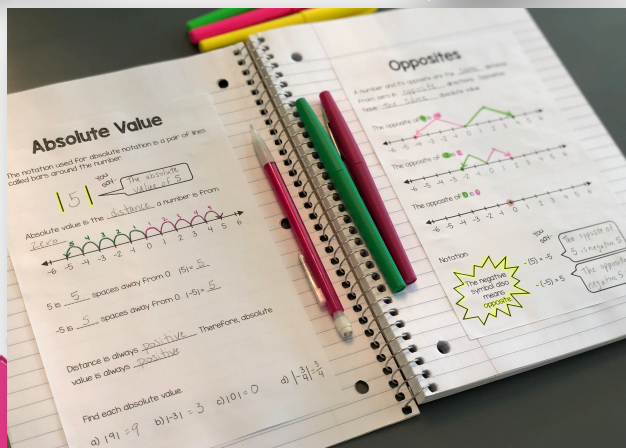 Absolute Value
The notation used for absolute notation is a pair of lines
called bars around the number.
|5|
you say:
The absolute
value of 5
Absolute value is the distance a number is from
zero
5 4 3 2 1 1 2 3 4 5
-6 -5 -4 -3 -2 -1 0 1 2 3 4 5 6
5 is 5 spaces away from 0. |5| = 5
-5 is 5 spaces away from 0. |-5| = 5
Distance is always positive. Therefore, absolute
value is always positive
Find each absolute value.
a) |9| = 9 b) |-3| = 3 c) |0| = 0 d) |-3/4| = 3/4
Opposites
A number and its opposite are the same distance
from zero in opposite directions. Opposites
have the same absolute value.
The opposite of
-6 -5 -4 -3 -2 -1 0 1 2 3 4 5 6
The opposite of
-6 -5 -4 -3 -2 -1 0 1 2 3 4 5 6
The opposite of 0 is 0
-6 -5 -4 -3 -2 -1 0 1 2 3 4 5 6
Notation
you say:
The negative
symbol also
means
opposite!
-(5) = -5
The opposite of
5 is negative 5
-(-5) = 5
The opposite
negative 5